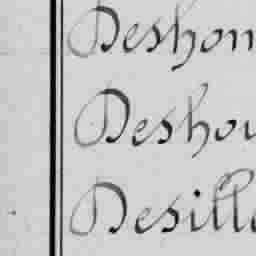 Deshon
Deshou
Desille